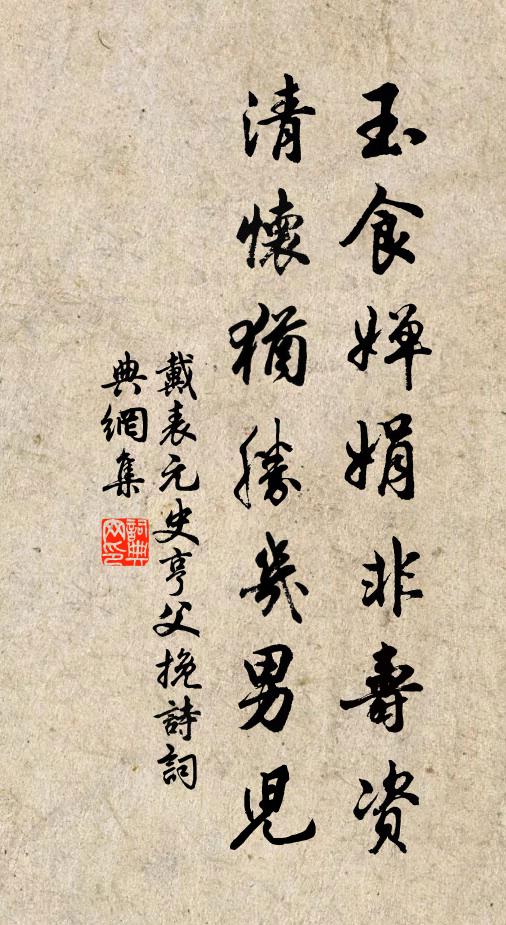 玉食婵娟非壽资
清懷猶勝幾男児
戴表元史亨父挽詩詞
典網集
詞典
网印